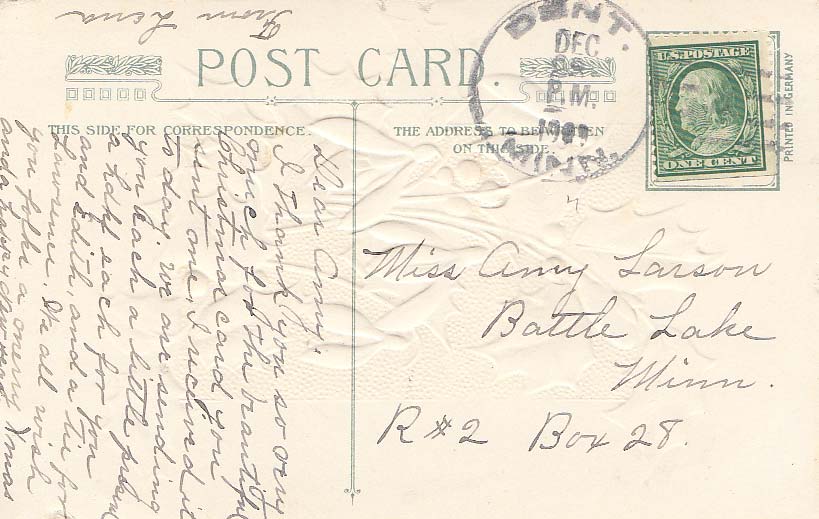 From Lena
POST CARD.
THIS SIDE FOR CORRESPONDENCE.
THE ADDRESS TO BE WRITTEN
ON THIS SIDE.
PRINTED IN GERMANY
DENT.
DEC
P.M.
MINN.
U.S. POSTAGE
ONE CENT
Dear Amy;
I Thank you so very
much for the beautiful
Christmas card you
sent me, I received it
to day. We are sending
you each a little
a hdkf each for you
and Edith, and a tie for
Lawrence. We all wish
you folks a merry Xmas
and a happy New Year
Miss Amy Larson
Battle Lake
Minn.
R#2 Box 28.